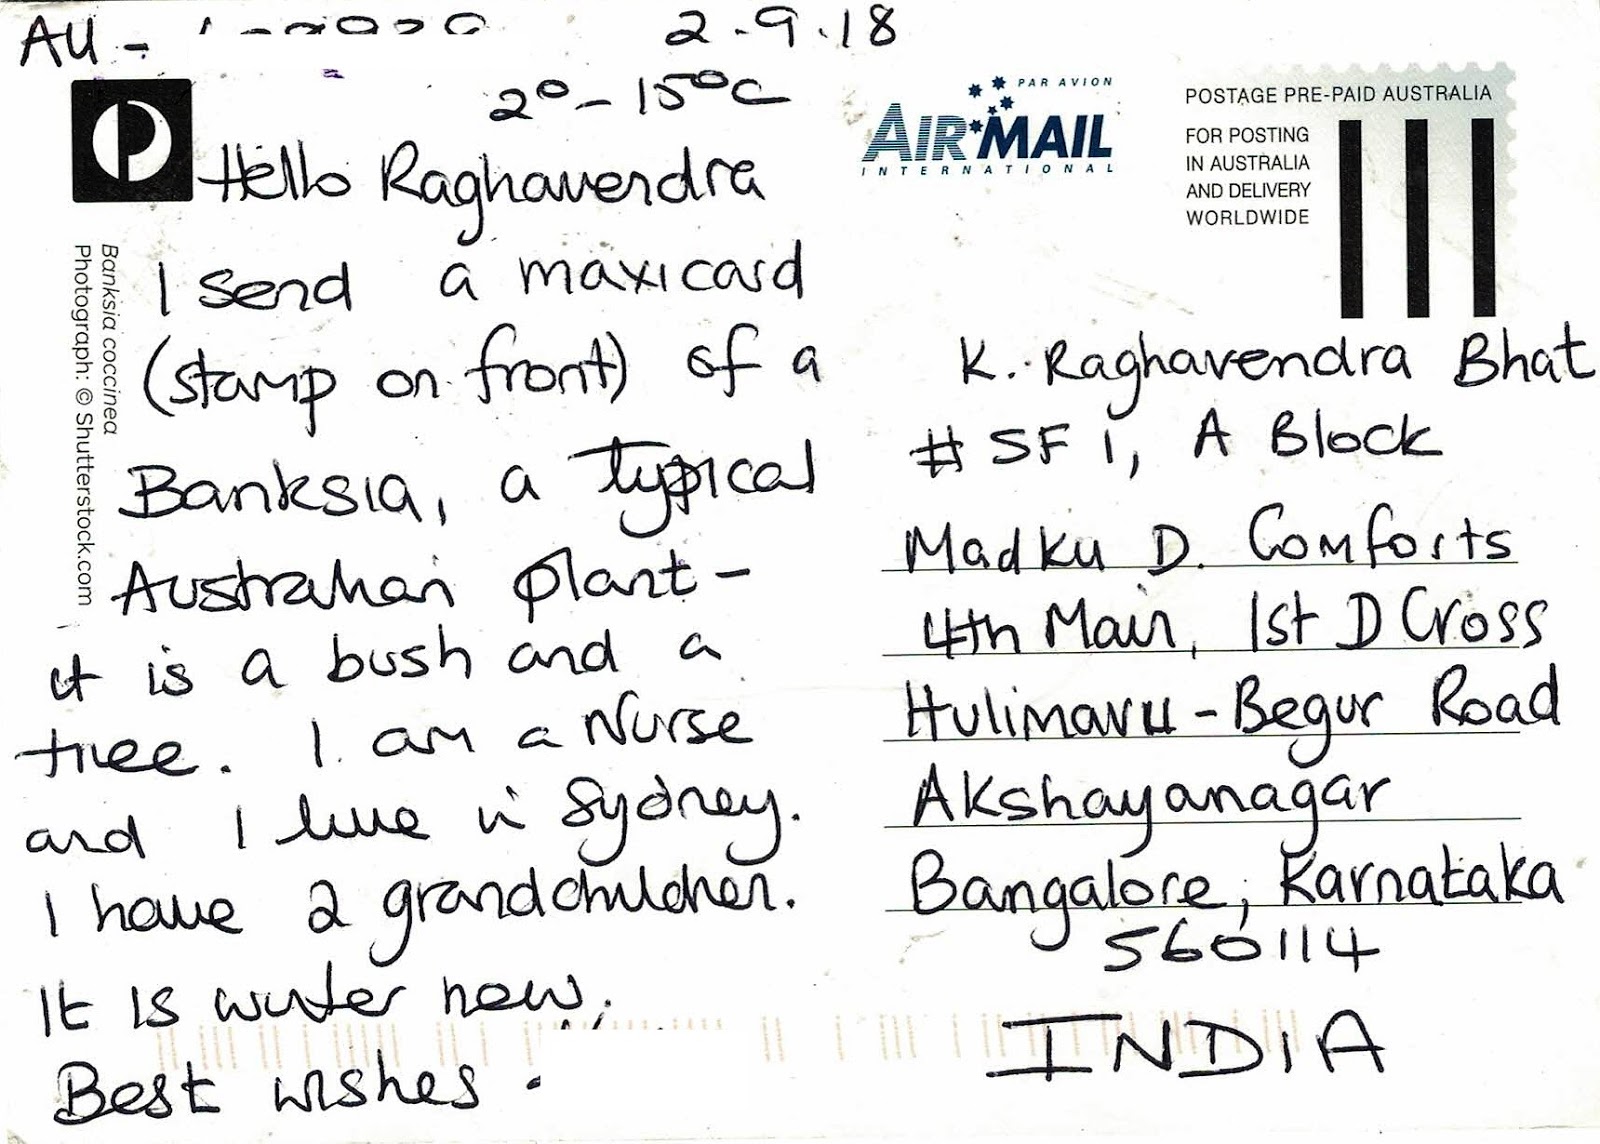 AU -
2.9.18
2° - 15°C
Hello Raghavendra
I send a maxicard
(stamp on front) of a
Banksia, a typical
Australian plant -
it is a bush and a
tree. I am a Nurse
and I live in Sydney.
I have 2 grandchildren.
It is winter now.
Best wishes.
Banksia coccinea
Photograph: © Shutterstock.com
PAR AVION
AIR MAIL
INTERNATIONAL
POSTAGE PRE-PAID AUSTRALIA
FOR POSTING
IN AUSTRALIA
AND DELIVERY
WORLDWIDE
K. Raghavendra Bhat
# SF 1, A Block
Madku D. Comforts
4th Main, 1st D Cross
Hulimavu - Begur Road
Akshayanagar
Bangalore, Karnataka
560114
INDIA